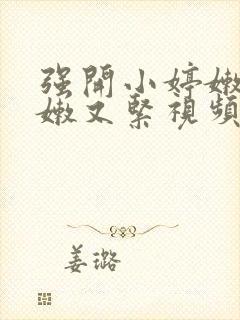 强開小婷嫩
嫩又緊視頻
姜璐